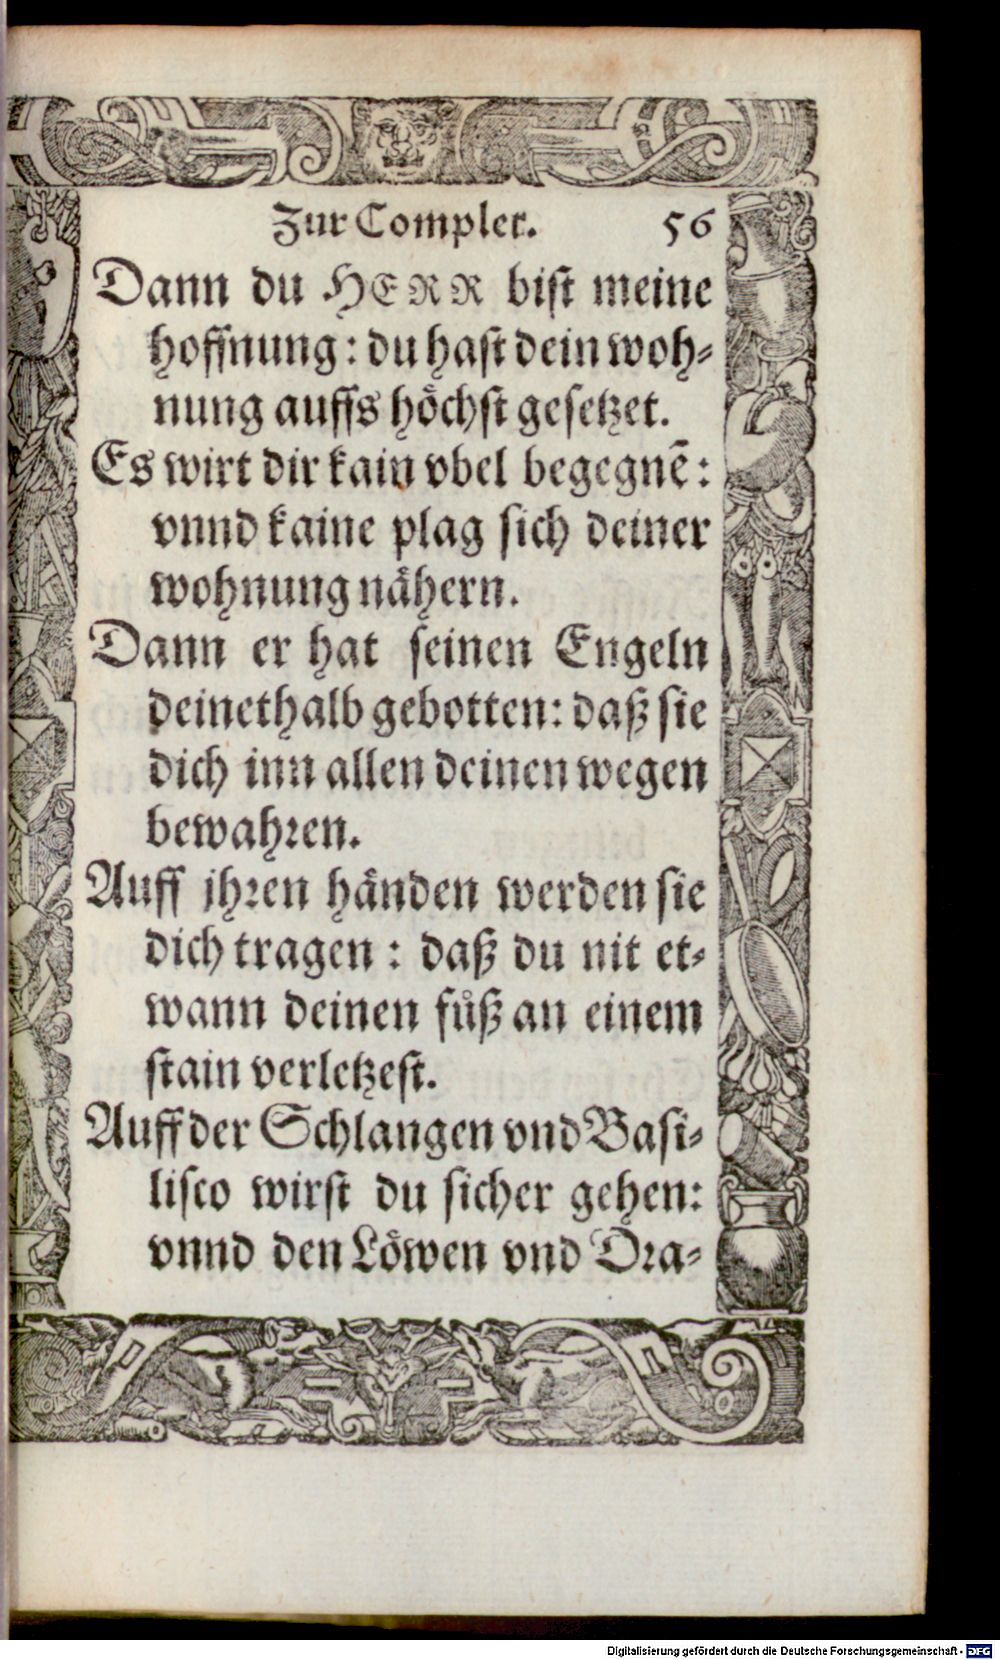 Zur Complet. 56
Dann du HERR bist meine
hoffnung: du hast dein woh⸗
nung auffs hoͤchst gesetzet.
Es wirt dir kain vbel begegnē:
vnnd kaine plag sich deiner
wohnung naͤhern.
Dann er hat seinen Engeln
deinethalb gebotten: daß sie
dich inn allen deinen wegen
bewahren.
Auff jhren haͤnden werden sie
dich tragen: daß du nit et⸗
wann deinen fuͦß an einem
stain verletzest.
Auff der Schlangen vnd Basi⸗
lisco wirst du sicher gehen:
vnnd den Loͤwen vnd Dra⸗
Digitalisierung gefördert durch die Deutsche Forschungsgemeinschaft - DFG